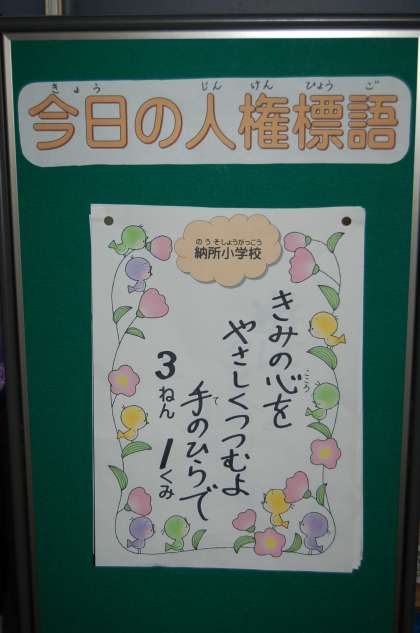 きょう じんけんひょうご
今日の人権標語
のうそしょうがっこう
納所小学校
きみの心を
こころ
やさしくつつむよ
手のひらで
て
3ねん 1くみ